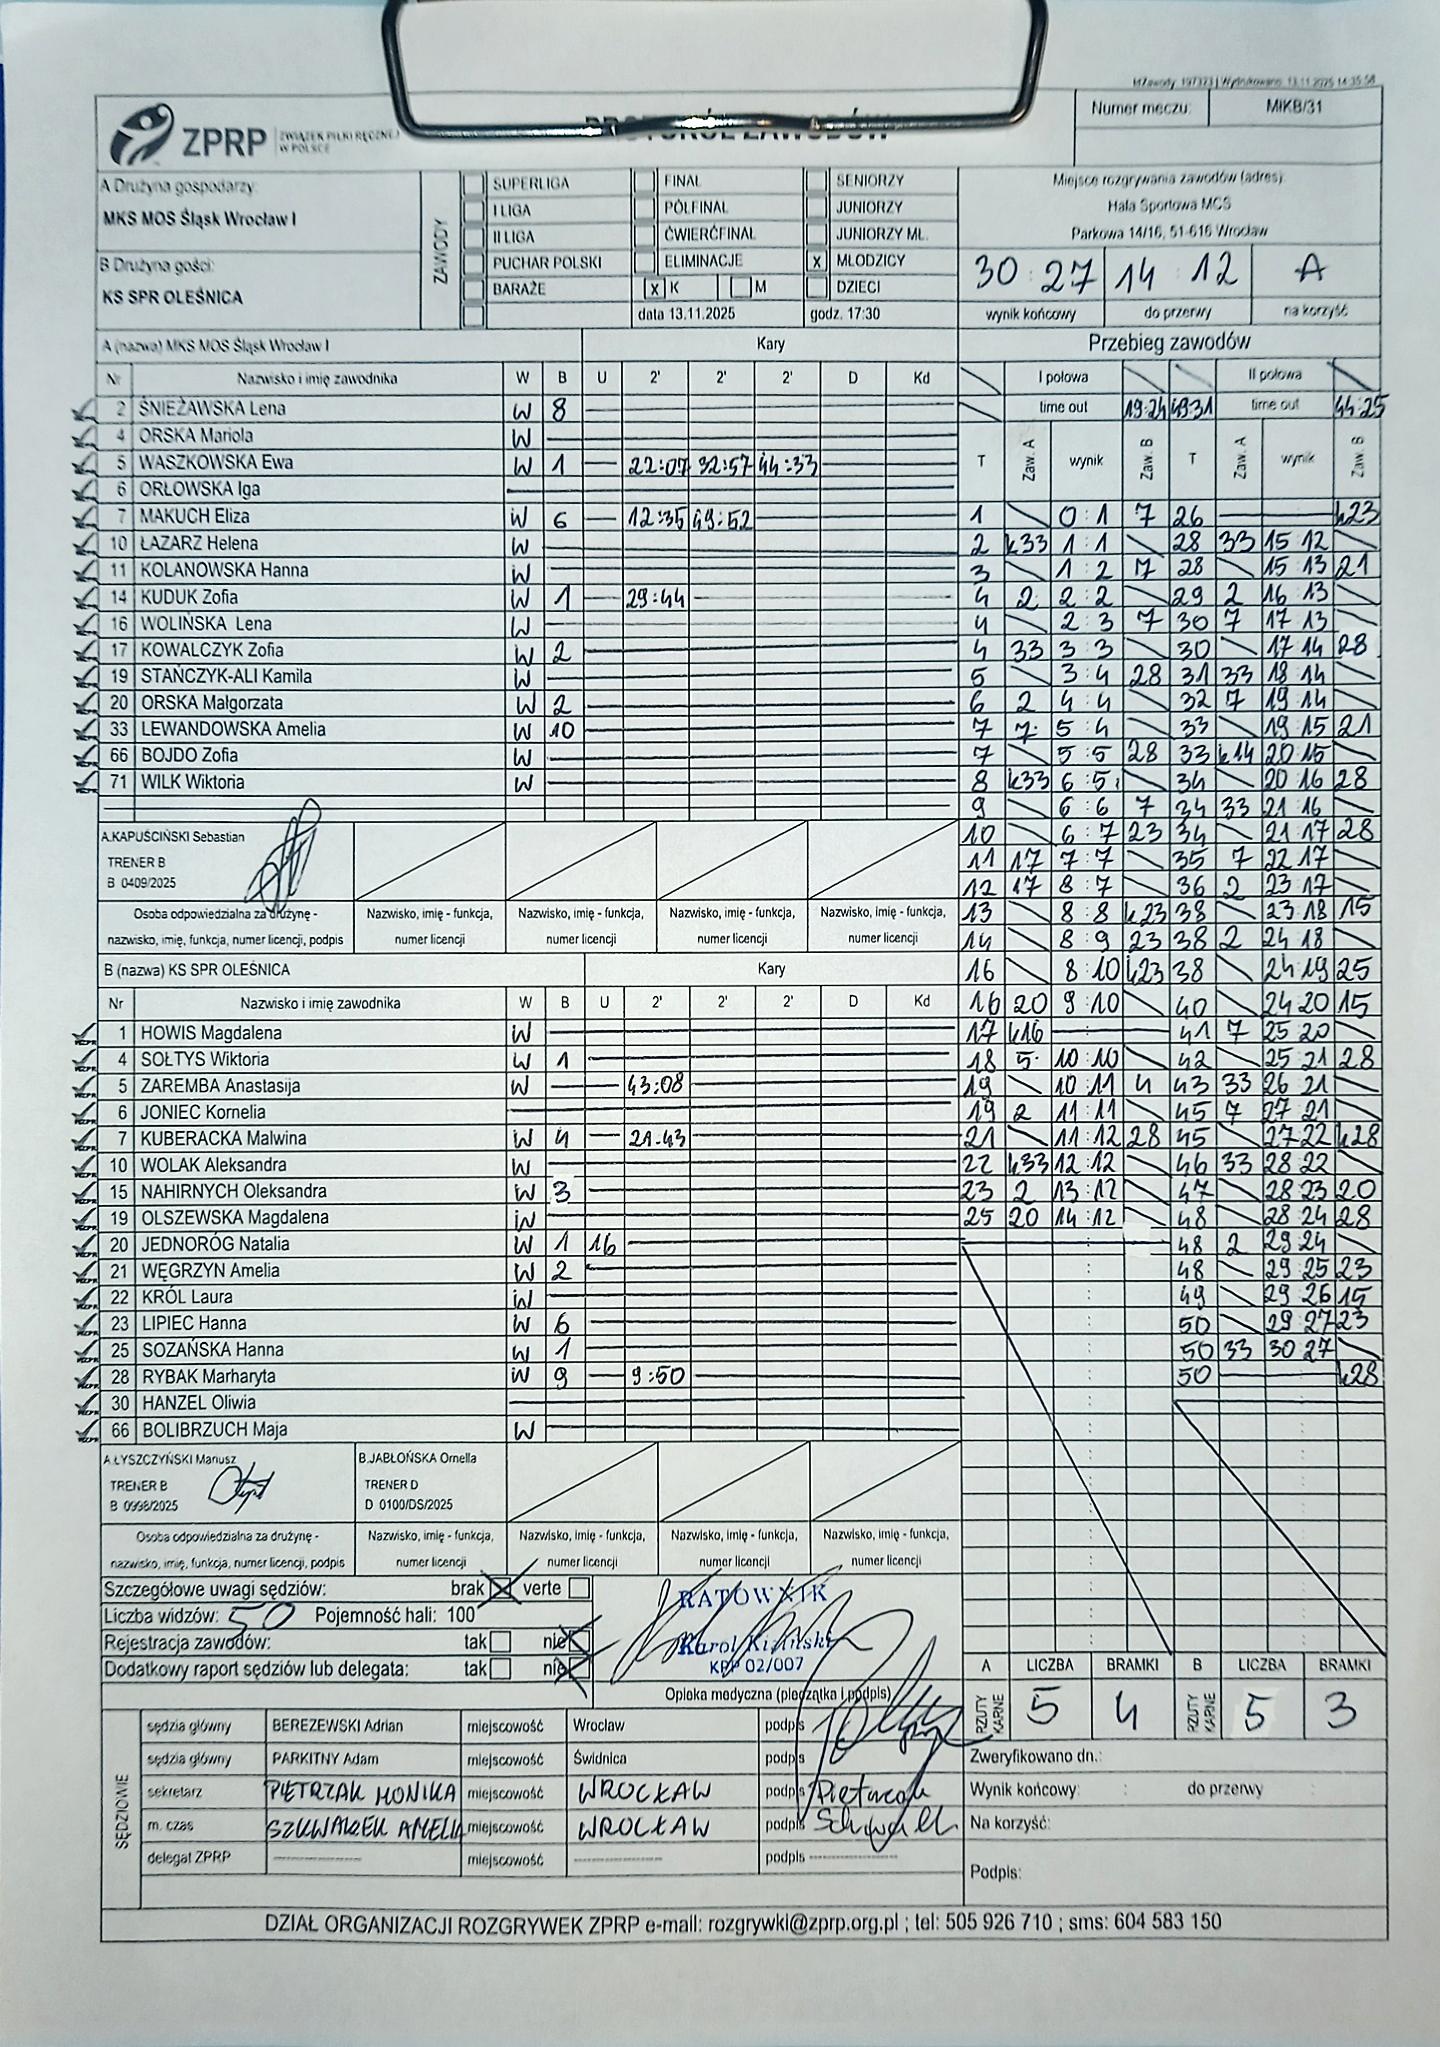 MZawody: 197323 | Wydrukowano: 13.11.2025 14:35:58
ZPRP ZWIĄZEK PIŁKI RĘCZNEJ W POLSCE
PROTOKÓŁ ZAWODÓW
Numer meczu: MIKB/31
A Drużyna gospodarzy:
MKS MOS Śląsk Wrocław I
B Drużyna gości:
KS SPR OLEŚNICA
ZAWODY
SUPERLIGA FINAŁ SENIORZY
I LIGA PÓŁFINAŁ JUNIORZY
II LIGA ĆWIERĆFINAŁ JUNIORZY MŁ.
PUCHAR POLSKI ELIMINACJE x MŁODZICY
BARAŻE x K M DZIECI
data 13.11.2025 godz. 17:30
Miejsce rozgrywania zawodów (adres):
Hala Sportowa MCS
Parkowa 14/16, 51-616 Wrocław
30 : 27 14 : 12 A
wynik końcowy do przerwy na korzyść
A (nazwa) MKS MOS Śląsk Wrocław I Kary
Nr Nazwisko i imię zawodnika W B U 2' 2' 2' D Kd
2 ŚNIEŻAWSKA Lena W 8
4 ORSKA Mariola W
5 WASZKOWSKA Ewa W 1 22:07 32:57 44:33
6 ORŁOWSKA Iga
7 MAKUCH Eliza W 6 12:35 49:52
10 ŁAZARZ Helena W
11 KOLANOWSKA Hanna W
14 KUDUK Zofia W 1 29:44
16 WOLIŃSKA Lena W
17 KOWALCZYK Zofia W 2
19 STAŃCZYK-ALI Kamila W
20 ORSKA Małgorzata W 2
33 LEWANDOWSKA Amelia W 10
66 BOJDO Zofia W
71 WILK Wiktoria W
A.KAPUŚCIŃSKI Sebastian
TRENER B
B 0409/2025
Osoba odpowiedzialna za drużynę - Nazwisko, imię - funkcja, Nazwisko, imię - funkcja, Nazwisko, imię - funkcja, Nazwisko, imię - funkcja,
nazwisko, imię, funkcja, numer licencji, podpis numer licencji numer licencji numer licencji numer licencji
B (nazwa) KS SPR OLEŚNICA Kary
Nr Nazwisko i imię zawodnika W B U 2' 2' 2' D Kd
1 HOWIS Magdalena W
4 SOŁTYS Wiktoria W 1
5 ZAREMBA Anastasija W 43:08
6 JONIEC Kornelia
7 KUBERACKA Malwina W 4 21:43
10 WOLAK Aleksandra W
15 NAHIRNYCH Oleksandra W 3
19 OLSZEWSKA Magdalena W
20 JEDNORÓG Natalia W 1 16
21 WĘGRZYN Amelia W 2
22 KRÓL Laura W
23 LIPIEC Hanna W 6
25 SOZAŃSKA Hanna W 1
28 RYBAK Marharyta W 9 9:50
30 HANZEL Oliwia
66 BOLIBRZUCH Maja W
A.ŁYSZCZYŃSKI Mariusz B.JABŁOŃSKA Ornella
TRENER B TRENER D
B 0998/2025 D 0100/DS/2025
Osoba odpowiedzialna za drużynę - Nazwisko, imię - funkcja, Nazwisko, imię - funkcja, Nazwisko, imię - funkcja, Nazwisko, imię - funkcja,
nazwisko, imię, funkcja, numer licencji, podpis numer licencji numer licencji numer licencji numer licencji
Przebieg zawodów
I połowa II połowa
time out 19:24 49:31 time out 44:25
T Zaw. A wynik Zaw. B T Zaw. A wynik Zaw. B
1 0:1 7 26 k23
2 k33 1:1 28 33 15:12
3 1:2 7 28 15:13 21
4 2 2:2 29 2 16:13
4 2:3 7 30 7 17:13
4 33 3:3 30 17:14 28
5 3:4 28 31 33 18:14
6 2 4:4 32 7 19:14
7 7 5:4 33 19:15 21
7 5:5 28 33 k14 20:15
8 k33 6:5 34 20:16 28
9 6:6 7 34 33 21:16
10 6:7 23 34 21:17 28
11 17 7:7 35 7 22:17
12 17 8:7 36 2 23:17
13 8:8 k23 38 23:18 15
14 8:9 23 38 2 24:18
16 8:10 k23 38 24:19 25
16 20 9:10 40 24:20 15
17 k16 41 7 25:20
18 5 10:10 42 25:21 28
19 10:11 4 43 33 26:21
19 2 11:11 45 7 27:21
21 11:12 28 45 27:22 k28
22 k33 12:12 46 33 28:22
23 2 13:12 47 28:23 20
25 20 14:12 48 28:24 28
48 2 29:24
48 29:25 23
49 29:26 15
50 29:27 23
50 33 30:27
50 k28
Szczegółowe uwagi sędziów: brak x verte
Liczba widzów: 50 Pojemność hali: 100
Rejestracja zawodów: tak nie x
Dodatkowy raport sędziów lub delegata: tak nie x
RATOWNIK
Karol
KPP 02/007
Opieka medyczna (pieczątka i podpis)
A LICZBA BRAMKI B LICZBA BRAMKI
RZUTY KARNE 5 4 RZUTY KARNE 5 3
SĘDZIOWIE
sędzia główny BEREZEWSKI Adrian miejscowość Wrocław podpis
sędzia główny PARKITNY Adam miejscowość Świdnica podpis
sekretarz PIETRZAK MONIKA miejscowość WROCŁAW podpis Pietrzak
m. czas SZKWAREK AMELIA miejscowość WROCŁAW podpis
delegat ZPRP miejscowość podpis
Zweryfikowano dn.:
Wynik końcowy: : do przerwy :
Na korzyść:
Podpis:
DZIAŁ ORGANIZACJI ROZGRYWEK ZPRP e-mail: rozgrywki@zprp.org.pl ; tel: 505 926 710 ; sms: 604 583 150